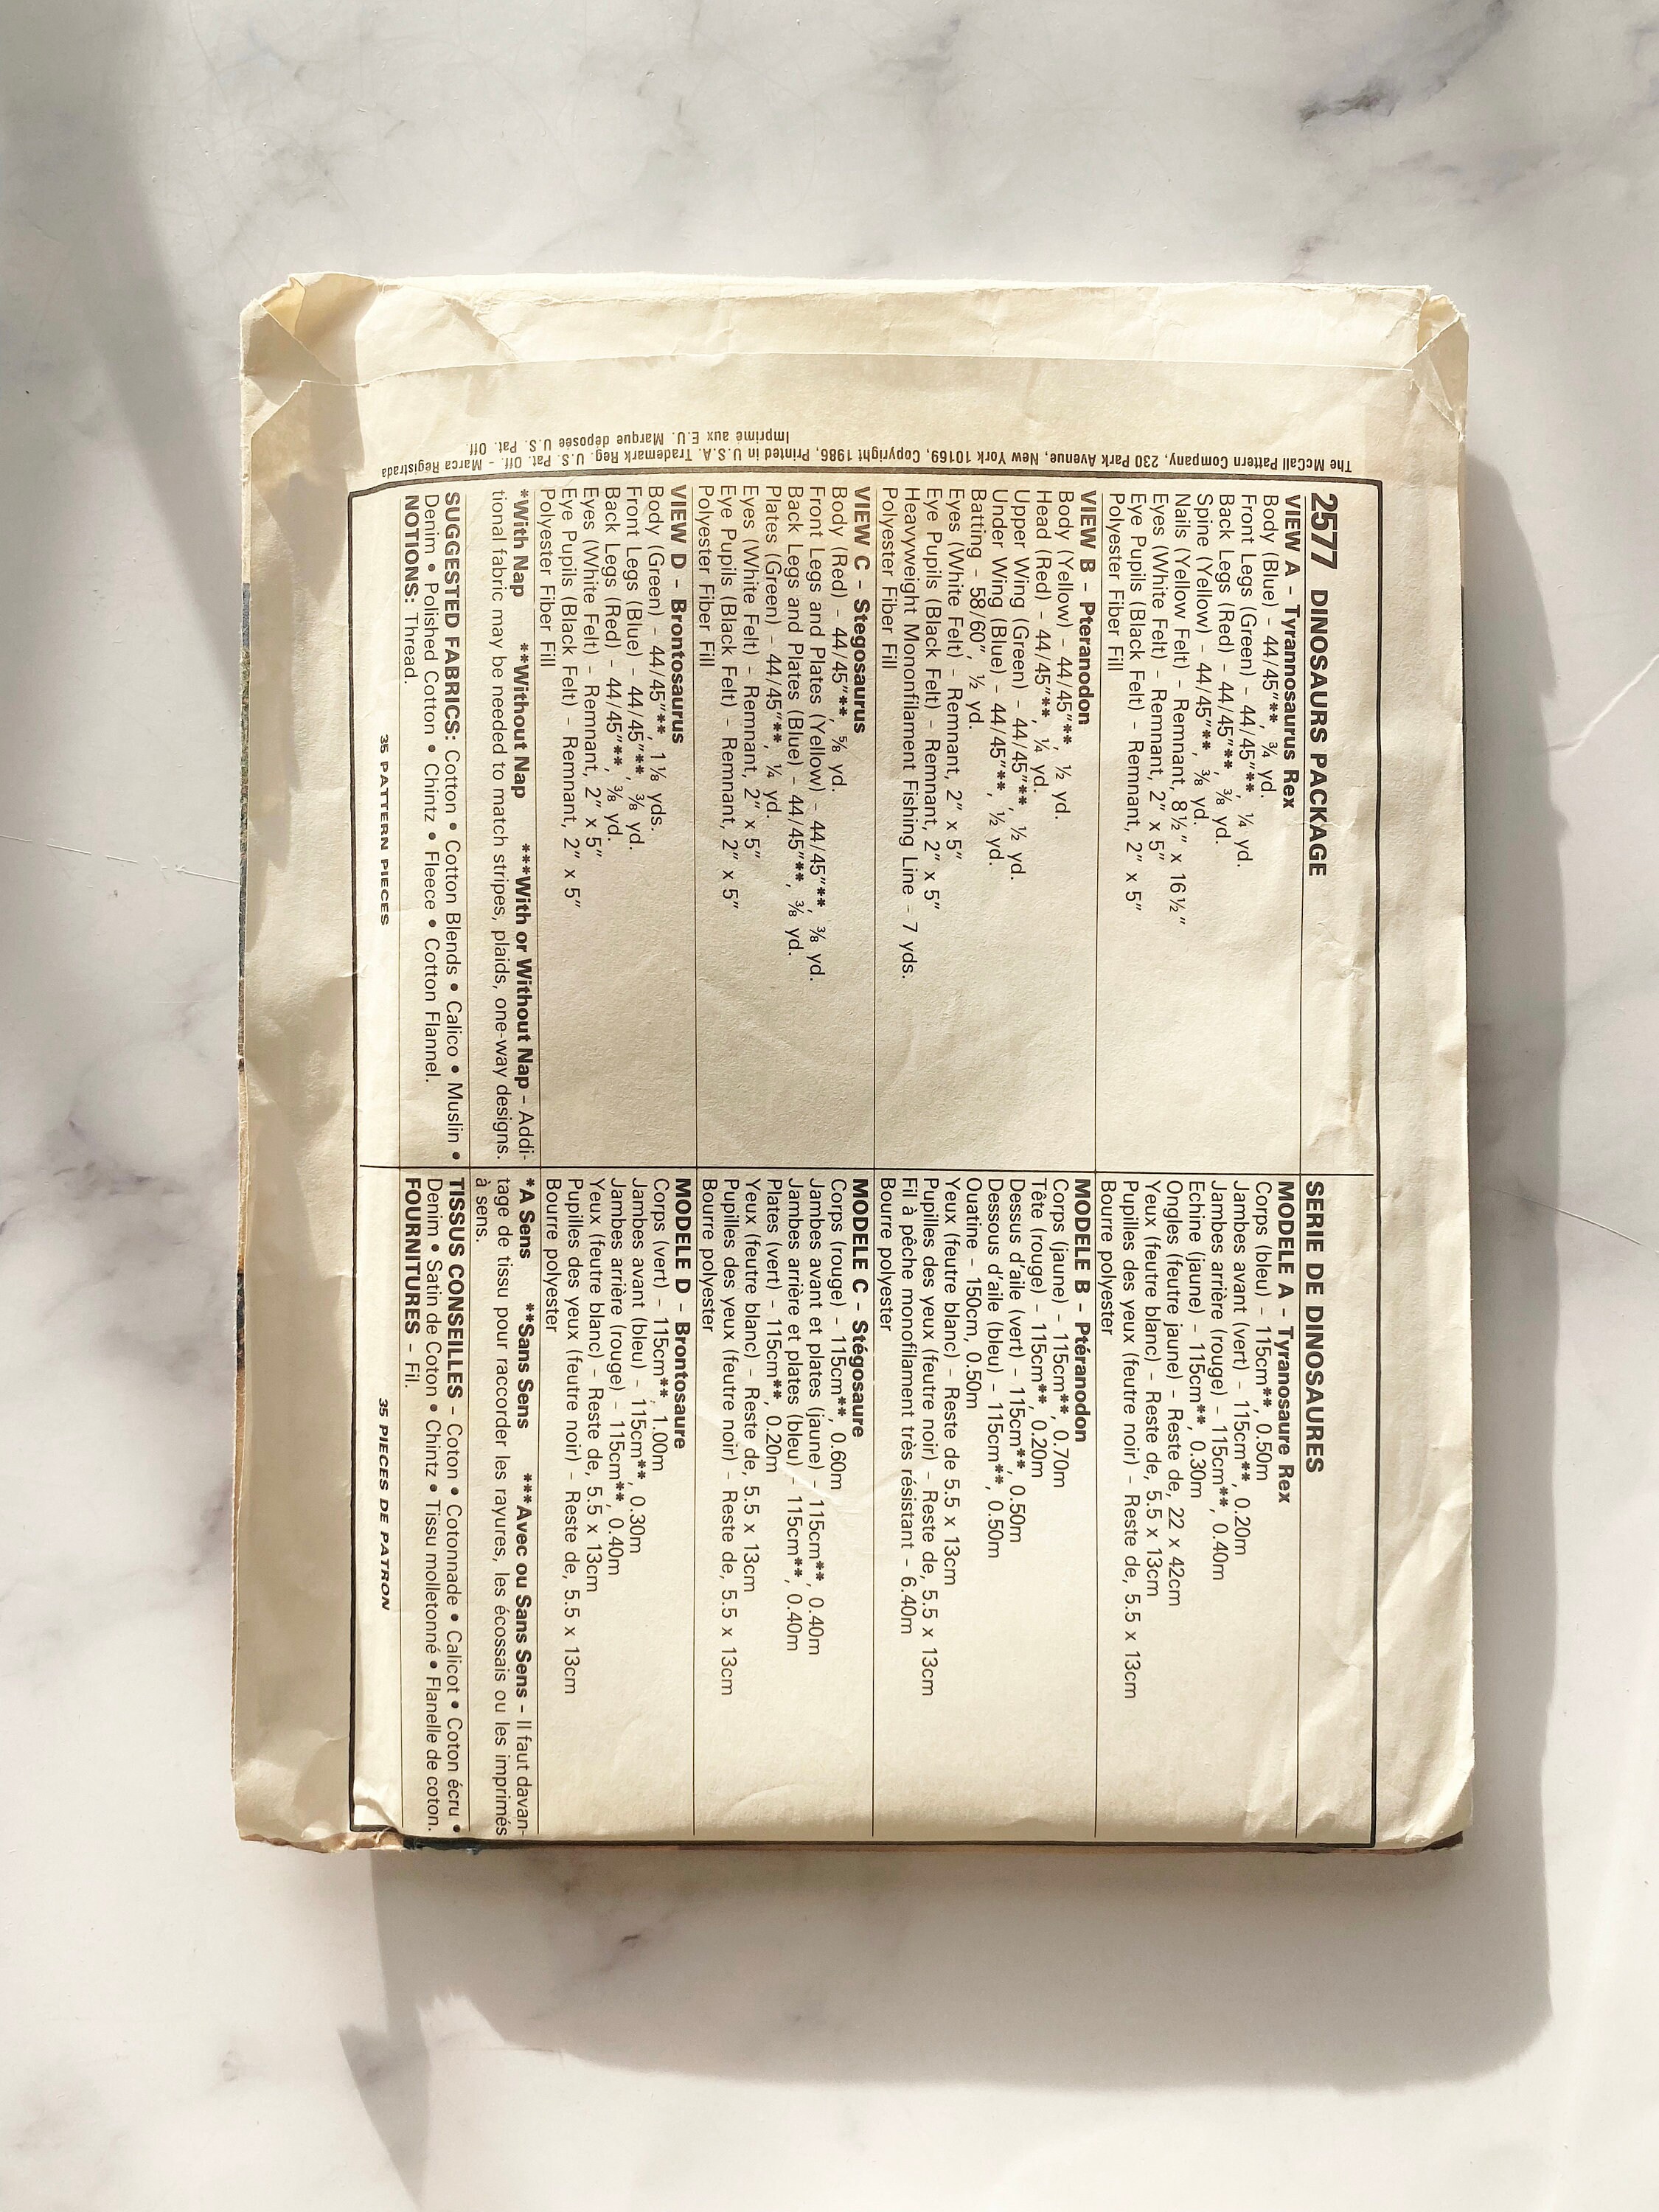 2577 DINOSAURS PACKAGE
VIEW A - Tyrannosaurus Rex
Body (Blue) - 44/45"**, ¾ yd.
Front Legs (Green) - 44/45"**, ¼ yd.
Back Legs (Red) - 44/45"**, ⅜ yd.
Spine (Yellow) - 44/45"**, ⅜ yd.
Nails (Yellow Felt) - Remnant, 8½" x 16½"
Eyes (White Felt) - Remnant, 2" x 5"
Eye Pupils (Black Felt) - Remnant, 2" x 5"
Polyester Fiber Fill
VIEW B - Pteranodon
Body (Yellow) - 44/45"**, ½ yd.
Head (Red) - 44/45"**, ¼ yd.
Upper Wing (Green) - 44/45"**, ½ yd.
Under Wing (Blue) - 44/45"**, ½ yd.
Batting - 58/60", ½ yd.
Eyes (White Felt) - Remnant, 2" x 5"
Eye Pupils (Black Felt) - Remnant, 2" x 5"
Heavyweight Monofilament Fishing Line - 7 yds.
Polyester Fiber Fill
VIEW C - Stegosaurus
Body (Red) - 44/45"**, ⅝ yd.
Front Legs and Plates (Yellow) - 44/45"**, ⅜ yd.
Back Legs and Plates (Blue) - 44/45"**, ⅜ yd.
Plates (Green) - 44/45"**, ¼ yd.
Eyes (White Felt) - Remnant, 2" x 5"
Eye Pupils (Black Felt) - Remnant, 2" x 5"
Polyester Fiber Fill
VIEW D - Brontosaurus
Body (Green) - 44/45"**, 1⅛ yds.
Front Legs (Blue) - 44/45"**, ⅜ yd.
Back Legs (Red) - 44/45"**, ⅜ yd.
Eyes (White Felt) - Remnant, 2" x 5"
Eye Pupils (Black Felt) - Remnant, 2" x 5"
Polyester Fiber Fill
*With Nap **Without Nap ***With or Without Nap - Addi-
tional fabric may be needed to match stripes, plaids, one-way designs.
SUGGESTED FABRICS: Cotton • Cotton Blends • Calico • Muslin •
Denim • Polished Cotton • Chintz • Fleece • Cotton Flannel.
NOTIONS: Thread.
35 PATTERN PIECES
SERIE DE DINOSAURES
MODELE A - Tyranosaure Rex
Corps (bleu) - 115cm**, 0.50m
Jambes avant (vert) - 115cm**, 0.20m
Jambes arrière (rouge) - 115cm**, 0.40m
Echine (jaune) - 115cm**, 0.30m
Ongles (feutre jaune) - Reste de, 22 x 42cm
Yeux (feutre blanc) - Reste de, 5.5 x 13cm
Pupilles des yeux (feutre noir) - Reste de, 5.5 x 13cm
Bourre polyester
MODELE B - Ptéranodon
Corps (jaune) - 115cm**, 0.70m
Tête (rouge) - 115cm**, 0.20m
Dessus d'aile (vert) - 115cm**, 0.50m
Dessous d'aile (bleu) - 115cm**, 0.50m
Ouatine - 150cm, 0.50m
Yeux (feutre blanc) - Reste de 5.5 x 13cm
Pupilles des yeux (feutre noir) - Reste de, 5.5 x 13cm
Fil à pêche monofilament très résistant - 6.40m
Bourre polyester
MODELE C - Stégosaure
Corps (rouge) - 115cm**, 0.60m
Jambes avant et plates (jaune) - 115cm**, 0.40m
Jambes arrière et plates (bleu) - 115cm**, 0.40m
Plates (vert) - 115cm**, 0.20m
Yeux (feutre blanc) - Reste de, 5.5 x 13cm
Pupilles des yeux (feutre noir) - Reste de, 5.5 x 13cm
Bourre polyester
MODELE D - Brontosaure
Corps (vert) - 115cm**, 1.00m
Jambes avant (bleu) - 115cm**, 0.30m
Jambes arrière (rouge) - 115cm**, 0.40m
Yeux (feutre blanc) - Reste de, 5.5 x 13cm
Pupilles des yeux (feutre noir) - Reste de, 5.5 x 13cm
Bourre polyester
*A Sens **Sans Sens ***Avec ou Sans Sens - Il faut davan-
tage de tissu pour raccorder les rayures, les écossais ou les imprimés
à sens.
TISSUS CONSEILLES - Coton • Cotonnade • Calicot • Coton écru •
Denim • Satin de Coton • Chintz • Tissu molletonné • Flanelle de coton.
FOURNITURES - Fil.
35 PIECES DE PATRON
The McCall Pattern Company, 230 Park Avenue, New York 10169, Copyright 1986, Printed in U.S.A. Trademark Reg. U.S. Pat. Off. - Marca Registrada
Imprimé aux E.U. Marque déposée U.S. Pat. Off.